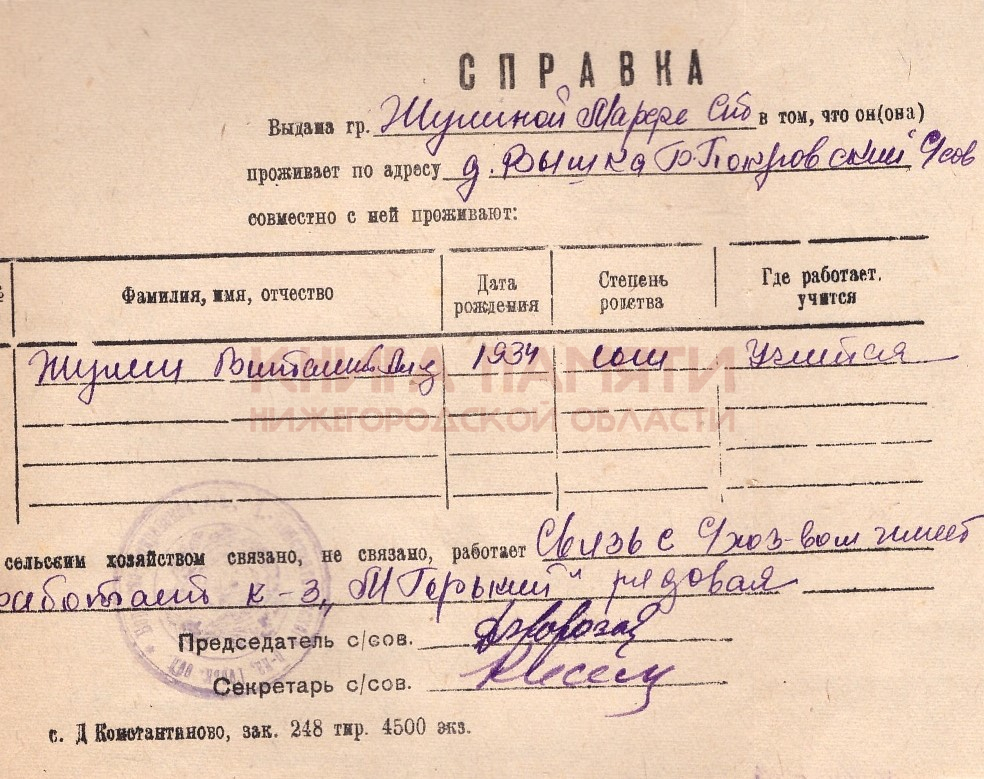 СПРАВКА
Выдана гр. Жулиной Марфе Ст в том, что он(она)
проживает по адресу д. Вышка Б. Покровский с/сов
совместно с ней проживают:
№ Фамилия, имя, отчество Дата рождения Степень родства Где работает. учится
Жулин Виталий 1934 сын Учится
КНИГА ПАМЯТИ
НИЖЕГОРОДСКОЙ ОБЛАСТИ
сельским хозяйством связано, не связано, работает Связь с с/хоз-вом имеет
работает к-з „М Горький" рядовая
Председатель с/сов.
Секретарь с/сов.
с. Д Константиново, зак. 248 тир. 4500 экз.